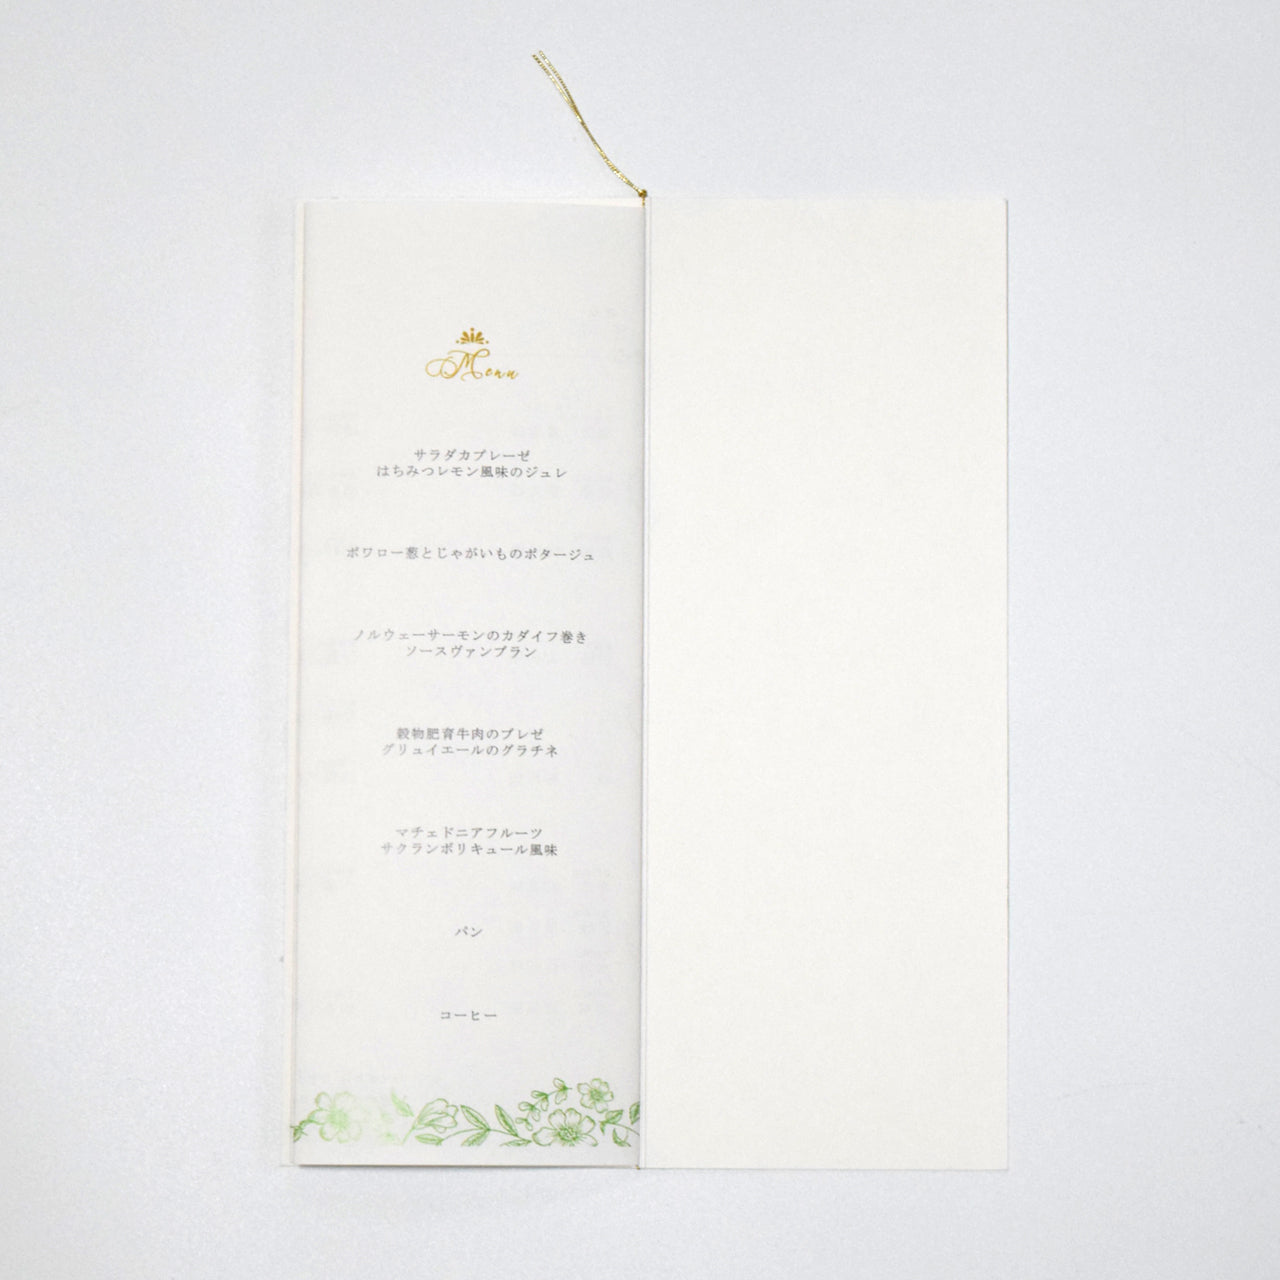 Menu
サラダカプレーゼ
はちみつレモン風味のジュレ
ポワロー葱とじゃがいものポタージュ
ノルウェーサーモンのカダイフ巻き
ソースヴァンブラン
穀物肥育牛肉のブレゼ
グリュイエールのグラチネ
マチェドニアフルーツ
サクランボリキュール風味
パン
コーヒー